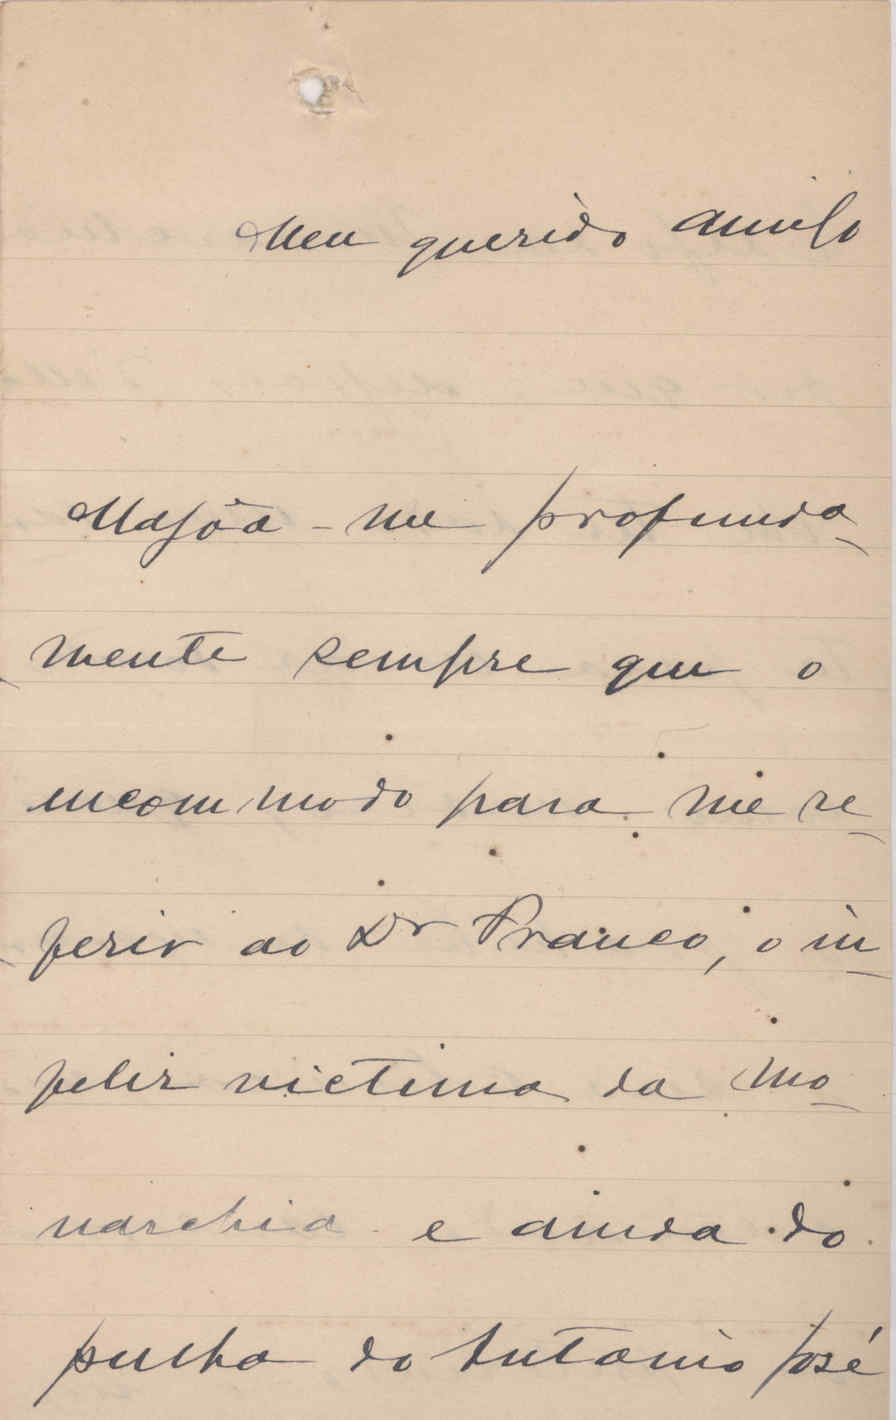 Meu querido amigo
Magôa-me profunda-
mente sempre que o
encommodo para me re-
ferir ao Dr Franco, o in-
feliz victima da mo-
narchia e ainda do
pulha do Antonio José